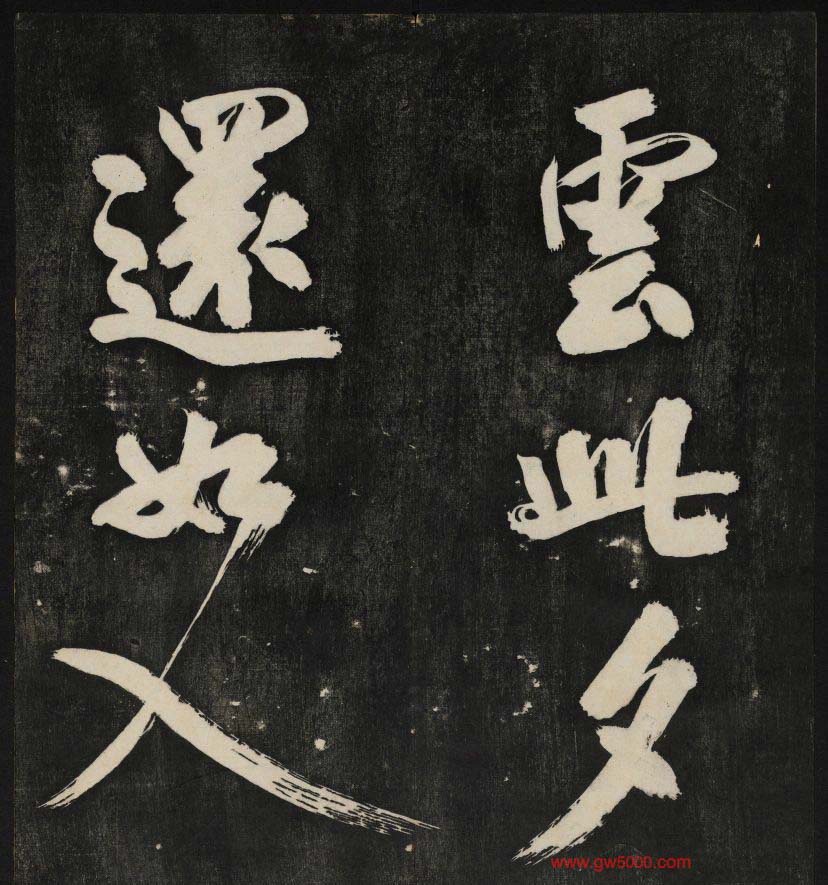 雲此夕
還如入
www.gw5000.com